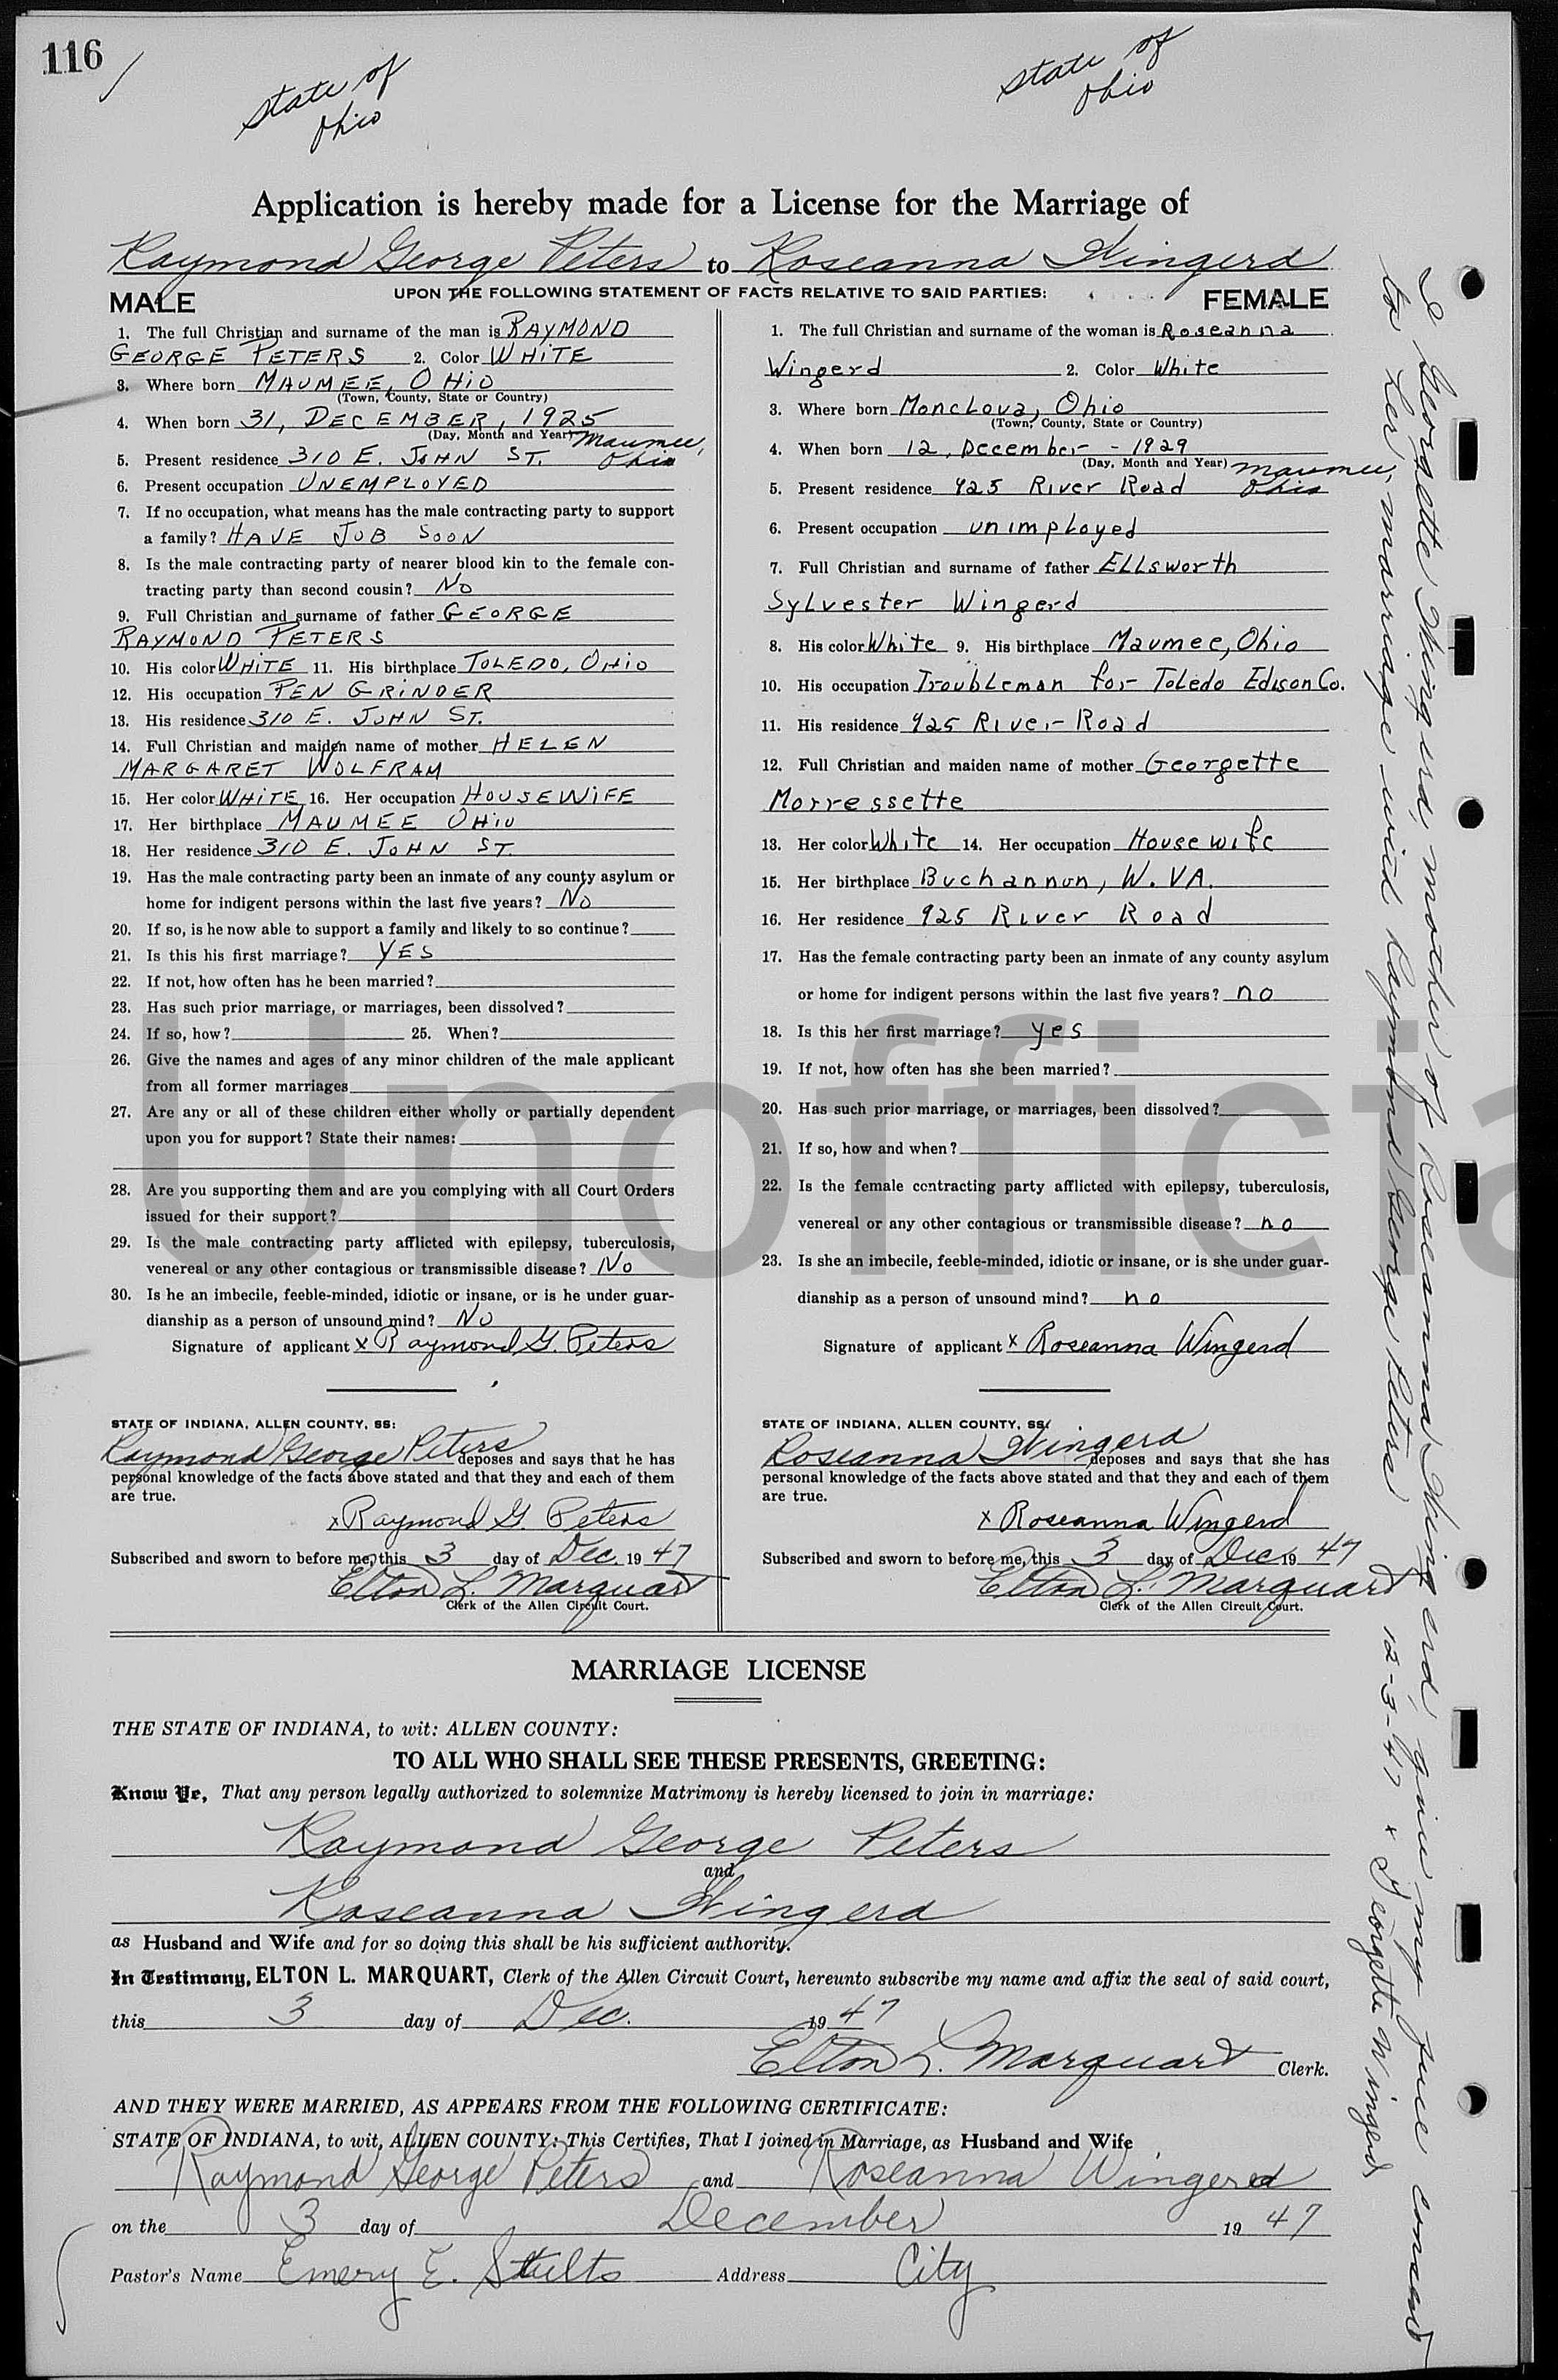 116
State of
Ohio
State of
Ohio
Application is hereby made for a License for the Marriage of
Raymond George Peters to Roseanna Wingerd
UPON THE FOLLOWING STATEMENT OF FACTS RELATIVE TO SAID PARTIES:
MALE
1. The full Christian and surname of the man is RAYMOND
GEORGE PETERS 2. Color WHITE
3. Where born MAUMEE, OHIO
(Town, County, State or Country)
4. When born 31, DECEMBER, 1925
(Day, Month and Year) Maumee,
5. Present residence 310 E. JOHN ST. Ohio
6. Present occupation UNEMPLOYED
7. If no occupation, what means has the male contracting party to support
a family? HAVE JOB SOON
8. Is the male contracting party of nearer blood kin to the female con-
tracting party than second cousin? NO
9. Full Christian and surname of father GEORGE
RAYMOND PETERS
10. His color WHITE 11. His birthplace TOLEDO, OHIO
12. His occupation PEN GRINDER
13. His residence 310 E. JOHN ST.
14. Full Christian and maiden name of mother HELEN
MARGARET WOLFRAM
15. Her color WHITE 16. Her occupation HOUSEWIFE
17. Her birthplace MAUMEE OHIO
18. Her residence 310 E. JOHN ST.
19. Has the male contracting party been an inmate of any county asylum or
home for indigent persons within the last five years? NO
20. If so, is he now able to support a family and likely to so continue?
21. Is this his first marriage? YES
22. If not, how often has he been married?
23. Has such prior marriage, or marriages, been dissolved?
24. If so, how? 25. When?
26. Give the names and ages of any minor children of the male applicant
from all former marriages
27. Are any or all of these children either wholly or partially dependent
upon you for support? State their names:
28. Are you supporting them and are you complying with all Court Orders
issued for their support?
29. Is the male contracting party afflicted with epilepsy, tuberculosis,
venereal or any other contagious or transmissible disease? NO
30. Is he an imbecile, feeble-minded, idiotic or insane, or is he under guar-
dianship as a person of unsound mind? NO
Signature of applicant x Raymond G. Peters
STATE OF INDIANA, ALLEN COUNTY, SS:
Raymond George Peters deposes and says that he has
personal knowledge of the facts above stated and that they and each of them
are true.
x Raymond G. Peters
Subscribed and sworn to before me, this 3 day of Dec. 1947
Elton L. Marquart
Clerk of the Allen Circuit Court.
FEMALE
1. The full Christian and surname of the woman is Roseanna
Wingerd 2. Color White
3. Where born Monclova, Ohio
(Town, County, State or Country)
4. When born 12, December - 1929
(Day, Month and Year) Maumee,
5. Present residence 925 River Road Ohio
6. Present occupation unimployed
7. Full Christian and surname of father Ellsworth
Sylvester Wingerd
8. His color White 9. His birthplace Maumee, Ohio
10. His occupation Troubleman for Toledo Edison Co.
11. His residence 925 River Road
12. Full Christian and maiden name of mother Georgette
Morressette
13. Her color White 14. Her occupation Housewife
15. Her birthplace Buchannon, W. VA.
16. Her residence 925 River Road
17. Has the female contracting party been an inmate of any county asylum
or home for indigent persons within the last five years? no
18. Is this her first marriage? yes
19. If not, how often has she been married?
20. Has such prior marriage, or marriages, been dissolved?
21. If so, how and when?
22. Is the female contracting party afflicted with epilepsy, tuberculosis,
venereal or any other contagious or transmissible disease? no
23. Is she an imbecile, feeble-minded, idiotic or insane, or is she under guar-
dianship as a person of unsound mind? no
Signature of applicant x Roseanna Wingerd
STATE OF INDIANA, ALLEN COUNTY, SS:
Roseanna Wingerd deposes and says that she has
personal knowledge of the facts above stated and that they and each of them
are true.
x Roseanna Wingerd
Subscribed and sworn to before me, this 3 day of Dec 1947
Elton L. Marquart
Clerk of the Allen Circuit Court.
MARRIAGE LICENSE
THE STATE OF INDIANA, to wit: ALLEN COUNTY:
TO ALL WHO SHALL SEE THESE PRESENTS, GREETING:
Know Ye, That any person legally authorized to solemnize Matrimony is hereby licensed to join in marriage:
Raymond George Peters
and
Roseanna Wingerd
as Husband and Wife and for so doing this shall be his sufficient authority.
In Testimony, ELTON L. MARQUART, Clerk of the Allen Circuit Court, hereunto subscribe my name and affix the seal of said court,
this 3 day of Dec. 1947
Elton L. Marquart Clerk.
AND THEY WERE MARRIED, AS APPEARS FROM THE FOLLOWING CERTIFICATE:
STATE OF INDIANA, to wit, ALLEN COUNTY: This Certifies, That I joined in Marriage, as Husband and Wife
Raymond George Peters and Roseanna Wingered
on the 3 day of December 1947
Pastor's Name Emery E. Stults Address City
I Georgette Wingerd, mother of Roseanna Wingerd, give my free consent
to her marriage with Raymond George Peters 12-3-47 x Georgette Wingerd
Unofficia